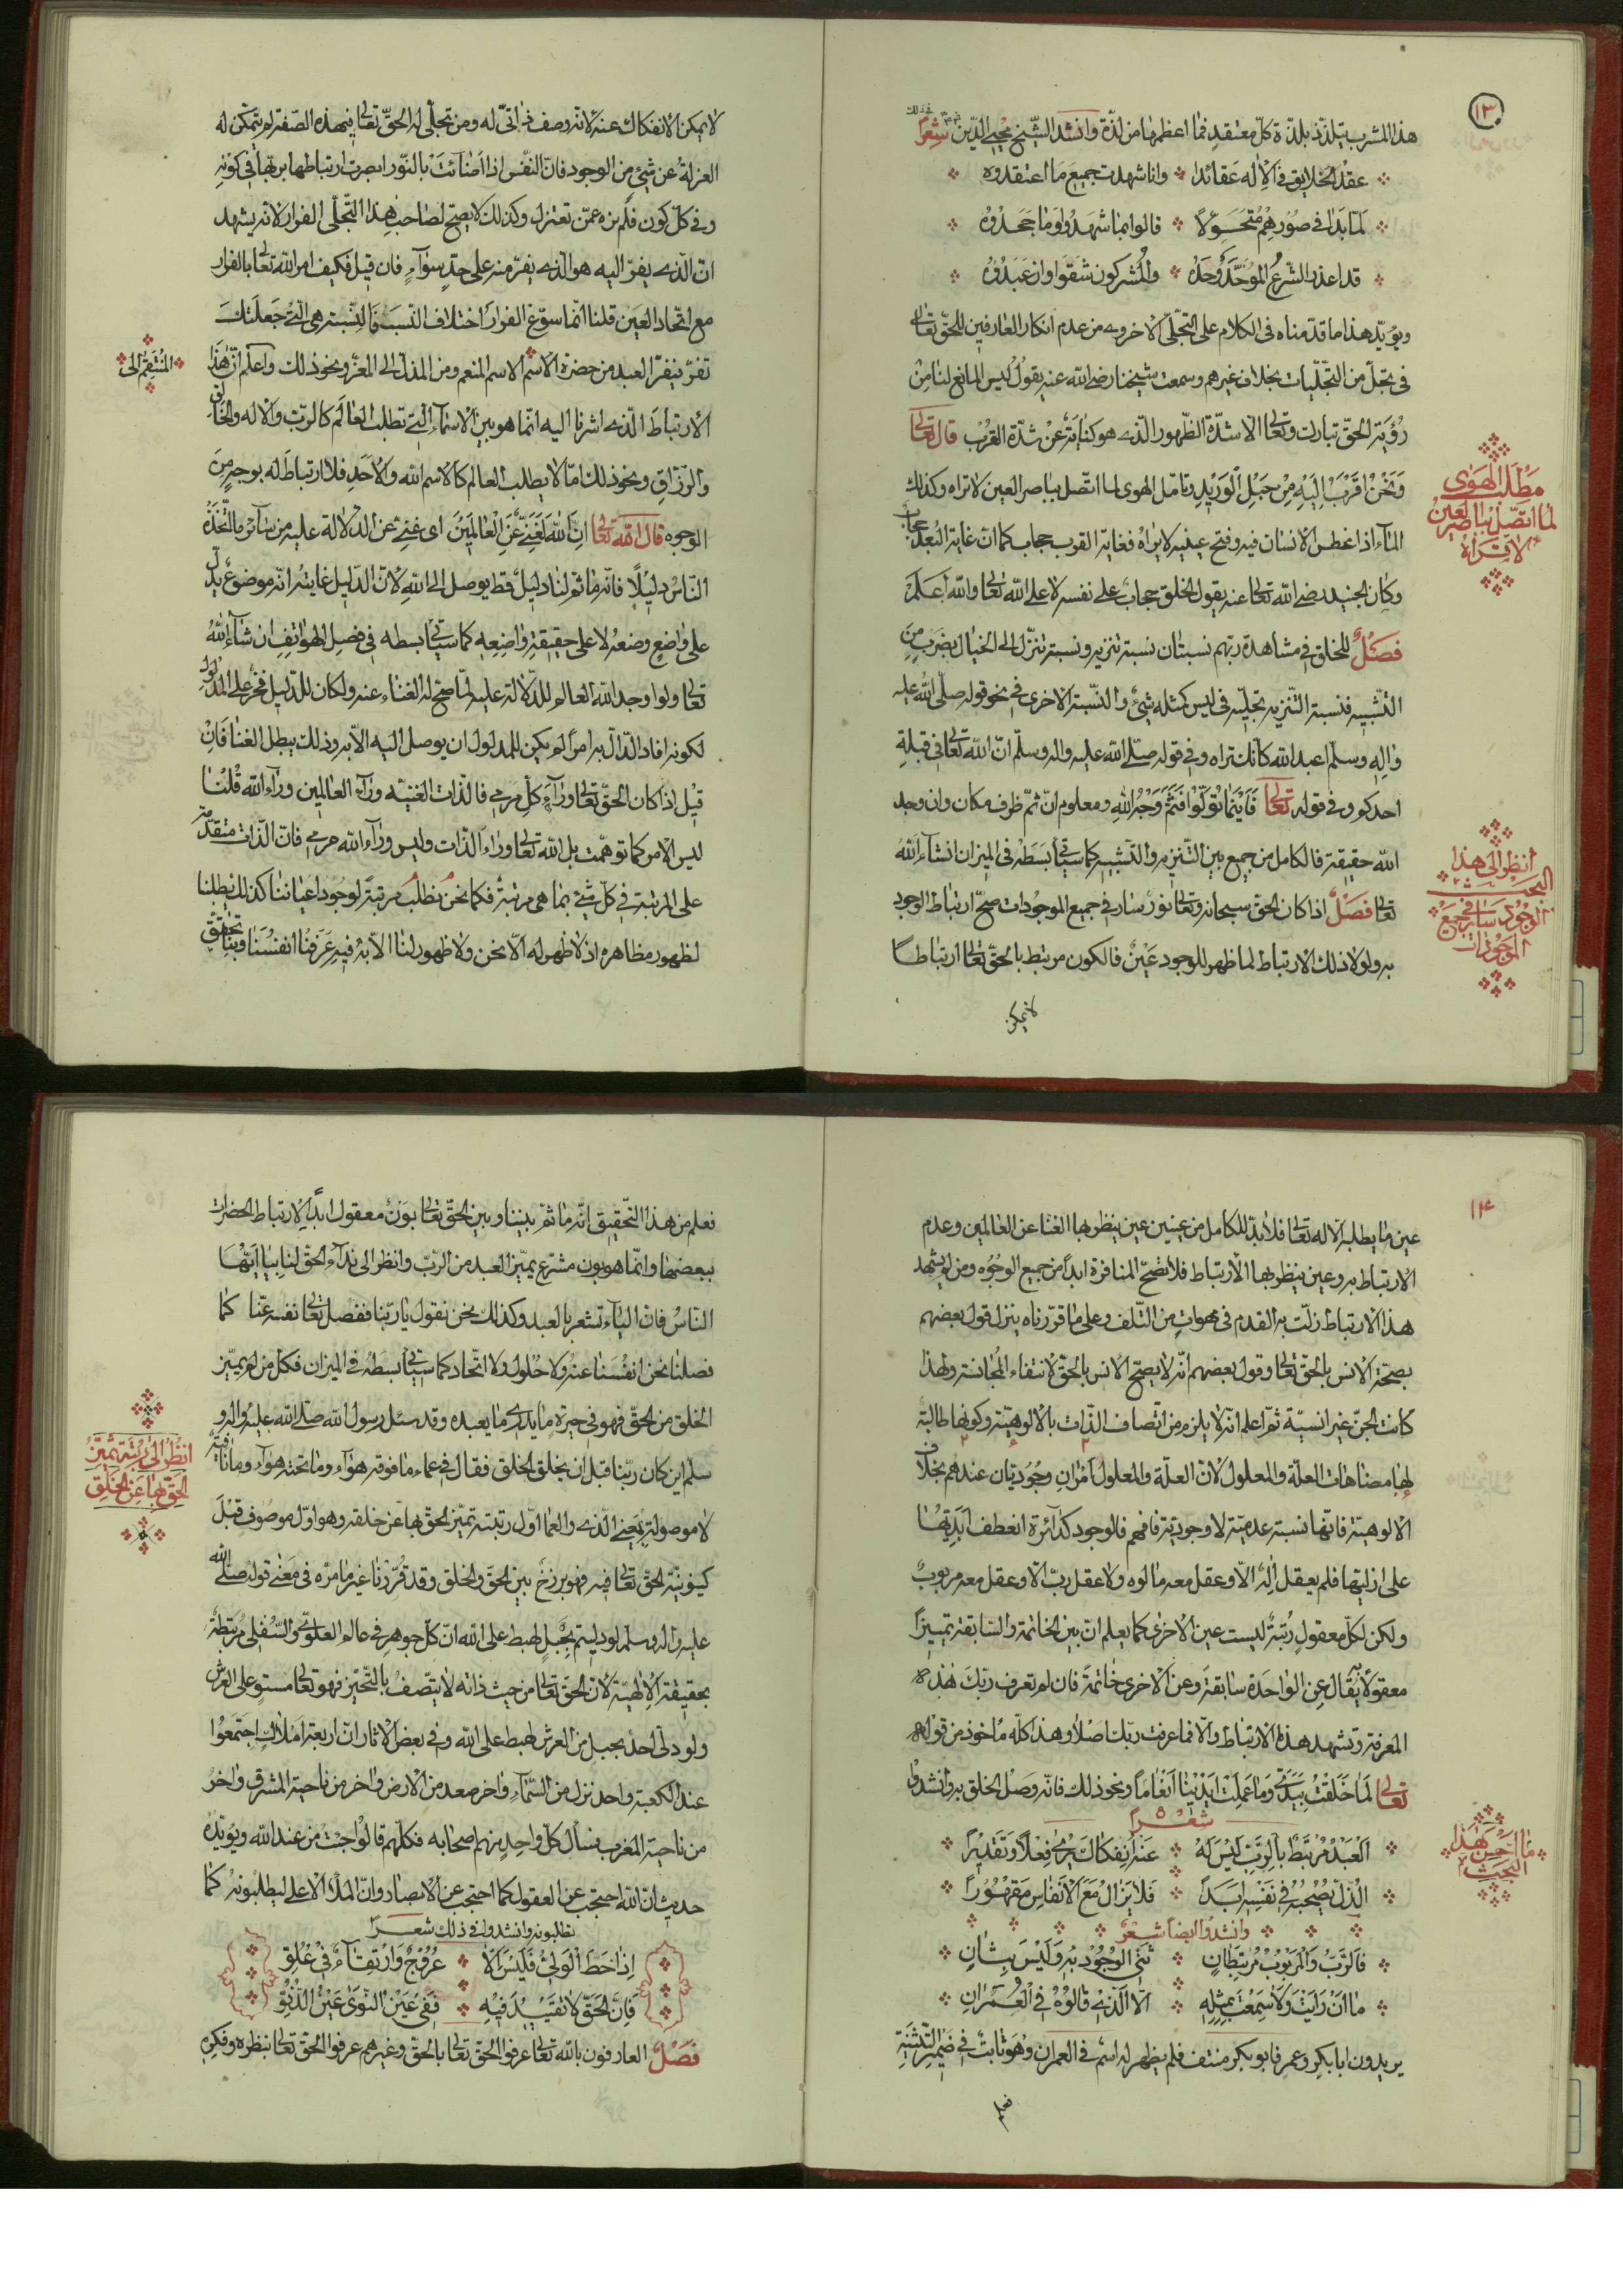 ١٣
هذا المشرب يتلذّذ بلذّة كلّ معتقد فما اعظمها من لذّة وانشد الشّيخ محيى الدّين في ذلك شعراً
عقد الخلايق في الاله عقائدا وانا شهدت جميع ما اعتقدوه
لما بدا في صورهم متحوّلاً قالوا بما شهدوا وما جحدوه
قد اعذر الشّرع الموحّد وحده والمشركون شقوا وان عبدوه
ويؤيّد هذا ما قدّمناه فى الكلام على التجّلّى الاخروى من عدم انكار العارفين للحقّ تعالى
فى تجلّ من التجلّيات بخلاف غيرهم وسمعت شيخنا رضى الله عنه يقول ليس المانع لنا من
رؤية الحقّ تبارك وتعالى الّا شدّة الظّهور الّذى هو كناية عن شدّة القرب قال تعالى
وَنَحْنُ اَقْرَبُ اِلَيْهِ مِنْ حَبْلِ الْوَرِيْدِ وتامّل الهوى لما اتّصل بباصر العين لا تراه وكذلك
المآء اذا غطس الانسان فيه وفتح عينيه لا يراه فغاية القرب حجاب كما انّ غاية البعد حجاب
وكان الجنيد رضى الله تعالى عنه يقول الخلق حجاب على نفسه لا على الله تعالى والله اعلم
فصل للخلق في مشاهدة ربّهم نسبتان نسبة تنزيه ونسبة تنزّل الى الخيال بضرب من
التّشبيه فنسبة التّنزيه تجلّيه فى ليس كمثله شئ والنّسبة الاخرى في نحو قوله صلّى الله عليه
واله وسلّم اعبد الله كانّك تراه وفي قوله صلّى الله عليه واله وسلّم انّ الله تعالى في قبلة
احدكم وفي قوله تعالى فَاَيْنَمَا تُوَلّوا فَثَمَّ وَجْهُ اللهِ ومعلوم انّ ثمّ ظرف مكان وان وجه
الله حقيقته فالكامل من جمع بين التّنزيه والتّشبيه كما سيأتي بسطه فى الميزان انشاء الله
تعالى فصل اذا كان الحقّ سبحانه وتعالى نور سار في جميع الموجودات صحّ ارتباط الوجود
به ولولا ذلك الارتباط لما ظهر للوجود عين فالكون مرتبط بالحقّ تعالى ارتباطاً
لا يمكن
مطلب الهوى
لما اتّصل بباصر العين
لا تراه
انظر الى هذا
البحث
الوجود سار في جميع
الموجودات
لا يمكن الانفكاك عنه لانّه وصف ذاتىّ له ومن تجلّى له الحقّ تعالى فى هذه الصّفة لم يتمكّن له
العزلة عن شئ من الوجود فانّ النّفس اذا اضائت بالنّور ابصرت ارتباطها بربّها في كونه
وفي كلّ كون فلم يره عمّن تعتزل وكذلك لا يصحّ لصاحب هذا التجلّى الفرار لانّه يشهد
انّ الّذى يفرّ اليه هو الّذى يفرّ منه على حدّ سواء فان قيل فكيف امر الله تعالى بالفرار
مع اتّحاد العين قلنا انّما سوّغ الفرار اختلاف النّسب فالنّسبة هي الّتى جعلتك
تفرّ فيفرّ العبد من حضرة الاسم الاسم المنعم ومن المذلّ الى المعزّ ونحو ذلك واعلم انّ هذا
الارتباط الّذى اشرنا اليه انّما هو بين الاسمآء الّتى تطلب العالم كالربّ والاله والخالق
والرّزّاق ونحو ذلك امّا لا يطلب العالم كالاسم الله والاحد فلا ارتباط له بوجه من
الوجوه قال الله تعالى اِنَّ اللهَ لَغَنِيٌّ عَنِ الْعَالَمِينَ اى غنىّ عن الدّلالة عليه من سآئر ما اتّخذه
النّاس دليلاً فانّه ما ثمّ لنا دليل قطّ يوصل الى الله لانّ الدّليل غايته انّه موضوع يدلّ
على واضع وضعه لا على حقيقة واضعه كما سيأتي بسطه في فصل الهواتف ان شآء الله
تعالى ولو اوجد الله العالم للدّلالة عليه لما صحّ له الغناء عنه ولكان للدّليل فخر على المدلول
لكونه افاد الدّالّ به امراً لم يكن للمدلول ان يوصل اليه الّا به وذلك يبطل الغنا فان
قيل اذا كان الحقّ تعالى ورآء كلّ مرمى فالذّات الغنيّة ورآء العالمين ورآء الله قلنا
ليس الامر كما توهّمت بل الله تعالى ورآء الذّات وليس ورآء الله مرمى فانّ الذّات متقدّمة
على المرتبة في كلّ شئ بما هى مرتبة فكما نحن نطلب مرتبة لوجود اعياننا كذلك يطلبنا
لظهور مظاهره اذ لا ظهر له الّا نحن ولا ظهور لنا الّا به فبه عرفنا انفسنا وبنا تحقّق
المنتقم الى
١٤
عين ما يطلبه الاله تعالى فلا بدّ للكامل من عينين عين ينظر بها الغنا عن العالمين وعدم
الارتباط به وعين ينظر بها الارتباط فلا تصحّ المنافرة ابداً من جميع الوجوه ومن لم يشهد
هذا الارتباط زلّت به القدم فى مهوات من التّلف وعلى ما قرّرناه ينزل قول بعضهم
بصحّة الانس بالحقّ تعالى وقول بعضهم انّه لا يصحّ الانس بالحقّ لانتفاء المجانسة ولهذا
كانت الجنّ غير انسيّة ثمّ اعلم انّه لا يلزم من اتّصاف الذّات بالالوهيّة وكونها طالبة
لها مضاهات العلّة والمعلول لانّ العلّة والمعلول امران وجوديّان عندهم بخلاف
الالوهيّة فانّها نسبة عدميّة لا وجوديّة فافهم فالوجود كدآئرة انعطف ابديّتها
على ازليّتها فلم يعقل اله الّا وعقل معه مالوه ولا عقل ربّ الّا وعقل معه مربوب
ولكن لكلّ معقول رتبة ليست عين الاخرى كما يعلم انّ بين الخاتمة والسّابقة تمييزاً
معقولاً به يقال عن الواحدة سابقة وعن الاخرى خاتمة فان لم تعرف ربّك بهذه
المعرفة وتشهد هذا الارتباط والّا فما عرفت ربّك اصلاً وهذا كلّه مأخوذ من قوله
تعالى لَمَا خَلَقْتُ بِيَدَىَّ وَمَا عَمِلَتْ اَيْدِيْنَا اَنْعَاماً ونحو ذلك فانّه وصل الخلق به وانشدوا
شعراً
اَلْعَبْدُ مُرْتَبِطٌ بِالرَّبِّ لَيْسَ لَهُ عَنْهُ اِنْفِكَاكٌ يُرىٰ فِعْلاً وَتَقْدِيْراً
الذّلّ يصحبه في نفسه ابداً فلا يزال مع الانفاس مقهوراً
وانشدوا ايضاً شعر
فَالرَّبُّ وَالْمَرْبُوبُ مُرْتَبِطَانِ ثنى الوجود به وليس بثان
ما ان رايت ولا سمعت بمثله الّا الّذى قالوه في العمران
يريدون ابا بكر وعمر فابو بكر منتف فلم يظهر له اسم فى العمران وهو ثابت في ضمير التّثنية
فعلم
ما احسن هذا
البحث
فعلم من هذا التّحقيق انّه ما ثمّ بيننا وبين الحقّ تعالى بون معقول ابداً لارتباط الحضرات
ببعضها وانّما هو بون مشرّع يميّز العبد من الربّ وانظر الى ندآء الحقّ لنا بيا ايّها
النّاس فانّ اليآء تشعر بالعبد وكذلك نحن نقول يا ربّنا ففصل تعالى نفسه عنّا كما
فصلنا نحن انفسنا عنه ولا حلول ولا اتّحاد كما سيأتي بسطه في الميزان فكلّ من لم يميّز
الخلق من الحقّ فهو في حيرة ما يدرى ما يعبده وقد سئل رسول الله صلّى الله عليه واله و
سلّم اين كان ربّنا قبل ان يخلق الخلق فقال في عماء ما فوقه هوآء وما تحته هوآء وما نافية
لا موصولة يعنى الّذى والعما اوّل رتبة تميّز الحقّ بها عن خلقه وهو اوّل موصوف قبل
كينونيّة الحقّ تعالى فيه فهو برزخ بين الحقّ والخلق وقد قرّرنا غير ما مرّة فى معنى قوله صلّى الله
عليه واله وسلّم لو دليتم بحبل لهبط على الله انّ كلّ جوهر في عالم العلوىّ والسّفلى مرتبطة
بحقيقة الالهيّة لانّ الحقّ تعالى من حيث ذاته لا يتّصف بالتّحيّز فهو تعالى مستو على العرش
ولو دلّى احد بحبل من العرش لهبط على الله وفي بعض الاثار انّ اربعة املاك اجتمعوا
عند الكعبة واحد نزل من السّمآء واخر صعد من الارض واخر من ناحية المشرق واخر
من ناحية المغرب فسأل كلّ واحد منهم اصحابه فكلّهم قالوا جئت من عند الله ويؤيّده
حديث انّ الله احتجب عن العقول كما احتجب عن الابصار وانّ الملأ الاعلى ليطلبونه كما
تطلبونه وانشدوا في ذلك شعراً
اذا حطّ الولىّ فليس الّا عروج وارتقآء فى علوّ
فانّ الحقّ لا تقييد فيه ففى عين النّوى عين الدّنوّ
فصل العارفون بالله تعالى عرفوا الحقّ تعالى بالحقّ وغيرهم عرفوا الحقّ تعالى بنظره وفكره
انظر الى رتبة تميّز
الحقّ بها عن الخلق